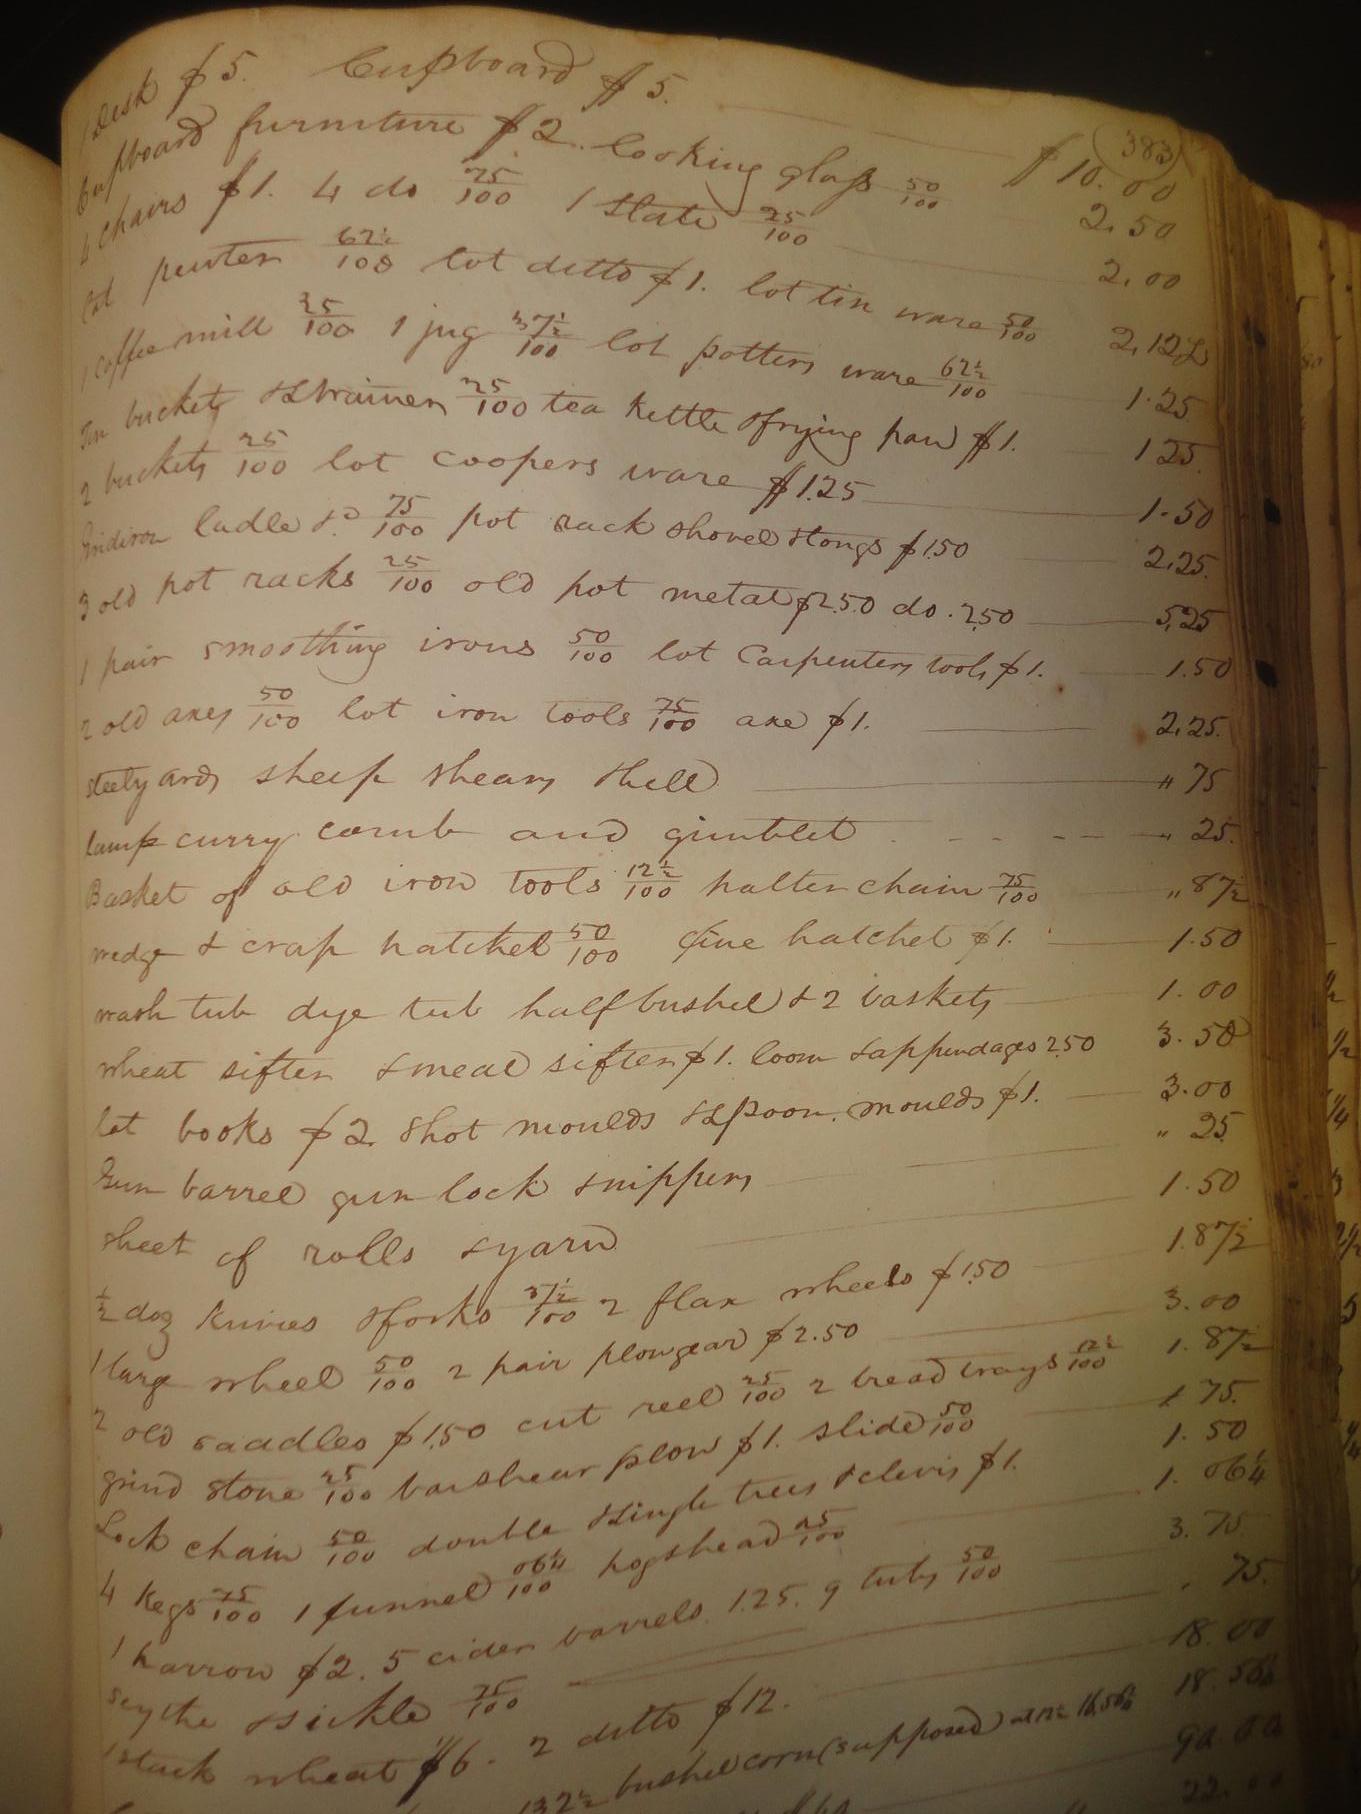 383
1 Desk $5. Cupboard $5. $10.00
Cupboard furniture $2. looking glass 50/100 2.50
4 chairs $1. 4 do 75/100 1 slate 25/100 2.00
lot pewter 62½/100 lot ditto $1. lot tin ware 50/100 2.12½
1 coffee mill 25/100 1 jug 37½/100 lot potters ware 62½/100 1.25
Tin bucket & strainer 25/100 tea kettle & frying pan $1. 1 25.
2 buckets 25/100 lot coopers ware $1.25 1.50
Gridiron ladle &c 75/100 pot rack shovel & tongs $1.50 2.25.
3 old pot racks 25/100 old pot metal $2.50 do. 2.50 5.25
1 pair smoothing irons 50/100 lot Carpenters tools $1. 1.50
2 old axes 50/100 lot iron tools 75/100 axe $1. 2.25.
steelyards sheep shears & bell " 75
lamp curry comb and gimblet " 25.
Basket of old iron tools 12½/100 halter chain 75/100 " 87½
wedge & crap hatchel 50/100 fine hatchel $1. 1.50
wash tub dye tub half bushel & 2 baskets 1.00
wheat sifter & meal sifter $1. loom & appendages 2.50 3.50
lot books $2. Shot moulds & spoon moulds $1. 3.00
Gun barrel gun lock & nippers " 25
sheet of rolls & yarn 1.50
½ doz knives & forks 37½/100 2 flax wheels $1.50 1.87½
1 large wheel 50/100 2 pair plow gear $2.50 3.00
2 old saddles $1.50 cut reel 25/100 2 bread trays 12½/100 1.87½
grind stone 25/100 barshear plow $1. slide 50/100 1 75.
Lock chain 50/100 double & single trees & clevis $1. 1.50
4 kegs 75/100 1 funnel 06¼/100 hogshead 25/100 1.06¼
1 harrow $2. 5 cider barrels 1.25. 9 tubs 50/100 3.75
scythe & sickle 75/100 75.
1 stack wheat $6. 2 ditto $12. 18.00
132½ bushel corn (supposed) at 12½ 16.56¼ 18.56¼
90.00
22.00